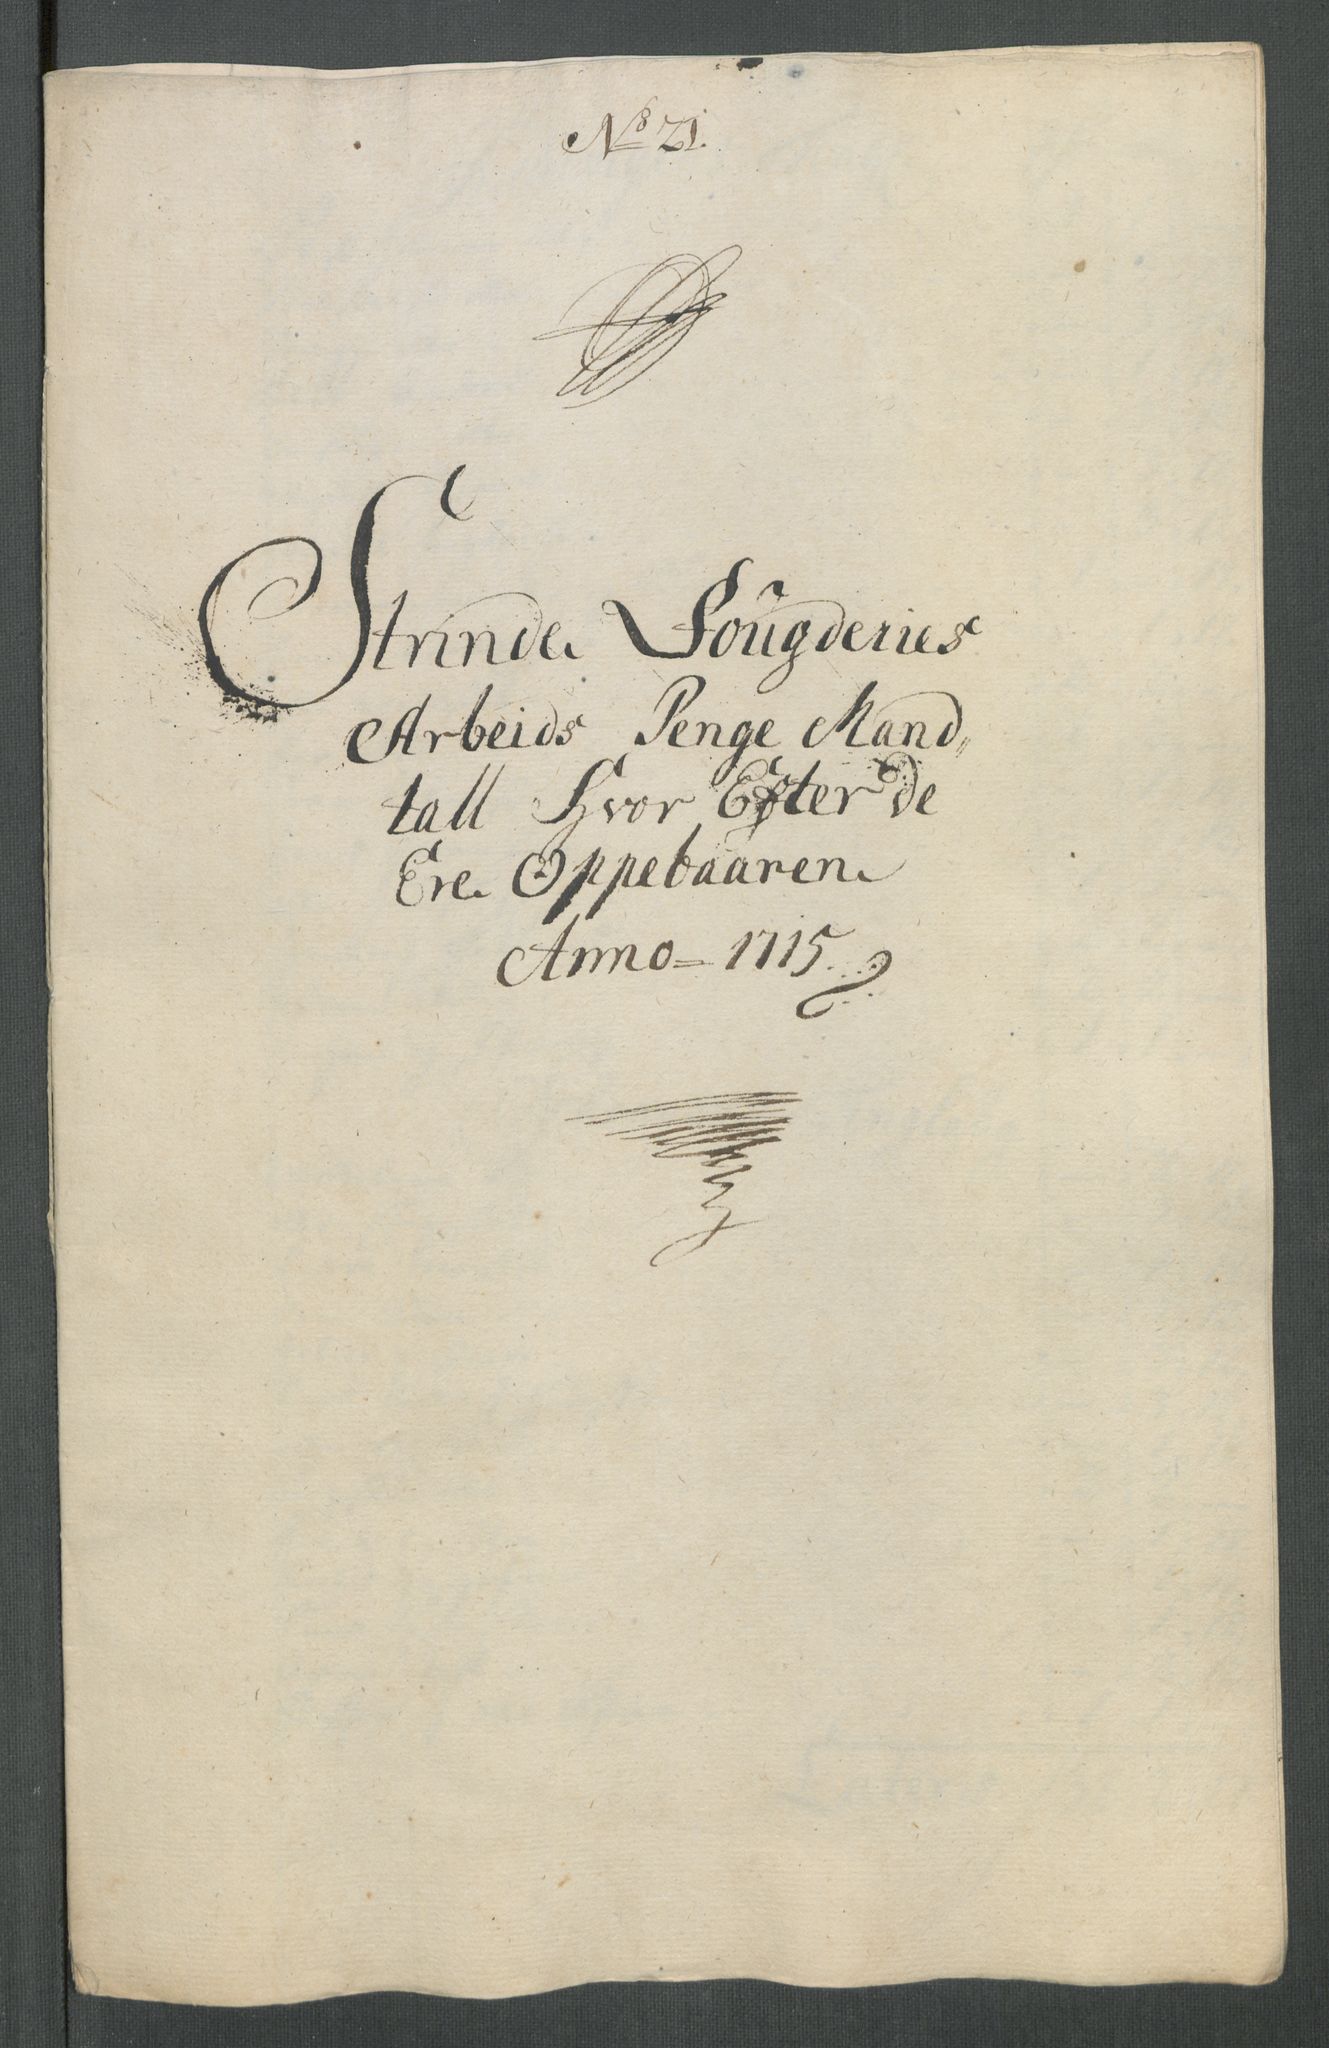 No 21.
Strinde Fougderies
Arbeids Penge Mand,,
tall Hvor Efter de
Ere Oppebaaren
Anno = 1715.